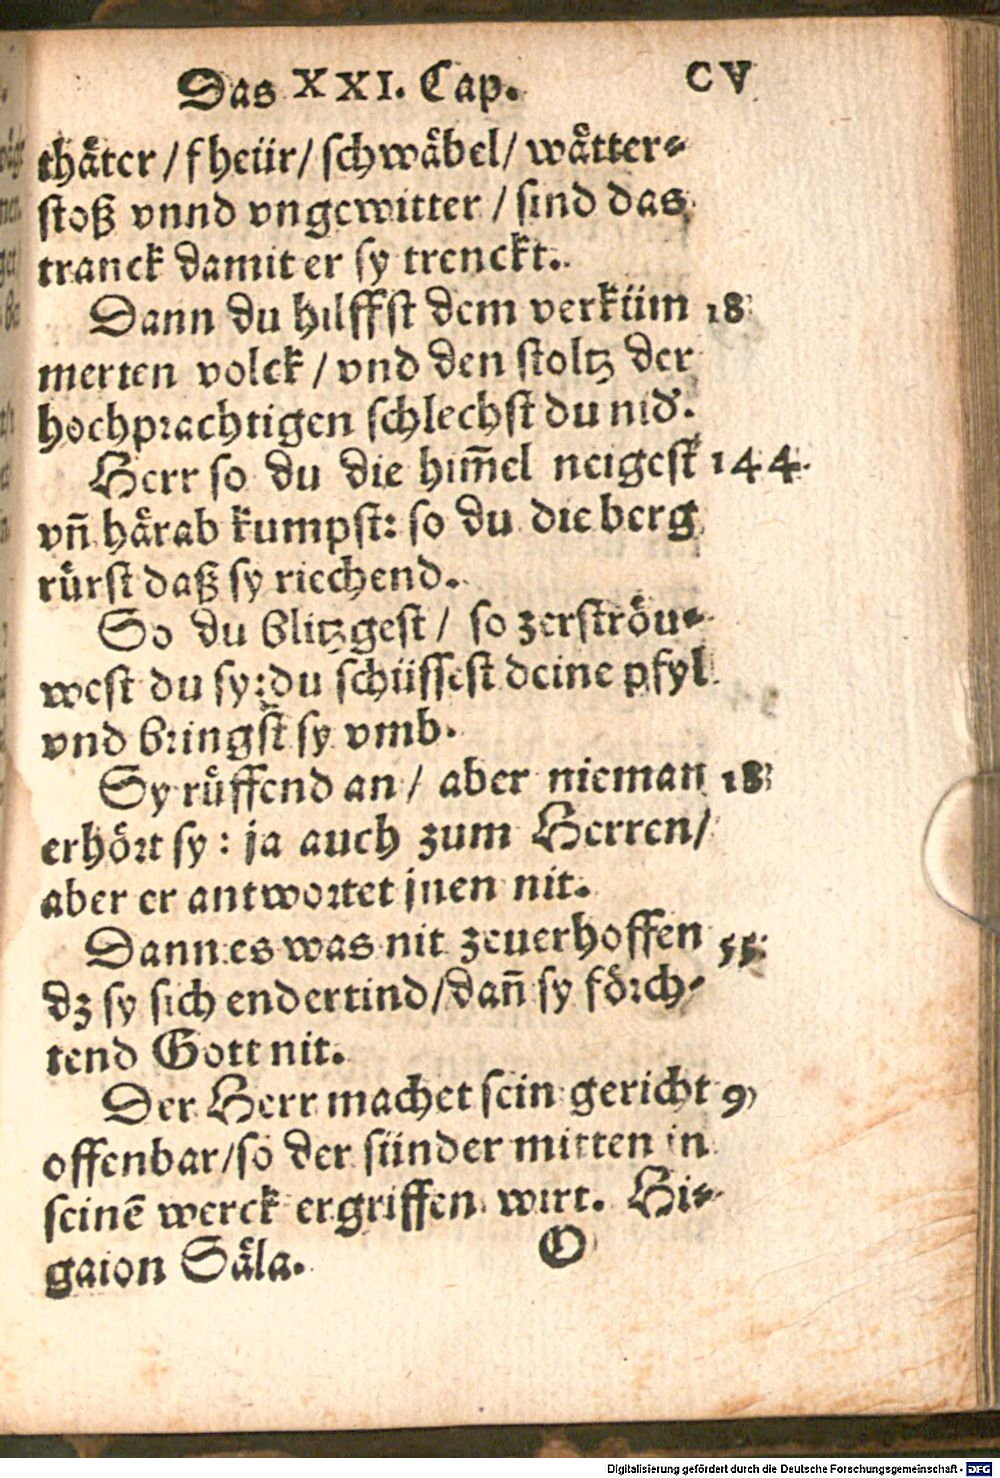 Das XXI. Cap. CV
thaͤter / fheür / schwaͤbel / waͤtter⸗
stoß vnnd vngewitter / sind das
tranck damit er sy trenckt.
Dann du hilffst dem verküm 18
merten volck / vnd den stoltz der
hochprachtigen schlechst du nid'.
Herr so du die him̃el neigest 144.
vñ haͤrab kumpst: so du die berg
ruͤrst daß sy riechend.
So du blitzgest / so zerstroͤu⸗
west du sy: du schüssest deine pfyl
vnd bringst sy vmb.
Sy ruͤffend an / aber nieman 18
erhoͤrt sy: ja auch zum Herren /
aber er antwortet jnen nit.
Dann es was nit zeuerhoffen 55.
dz sy sich endertind / dañ sy foͤrch⸗
tend Gott nit.
Der Herr machet sein gericht 9
offenbar / so der sünder mitten in
seinē werck ergriffen wirt. Hi⸗
gaion Saͤla. O
Digitalisierung gefördert durch die Deutsche Forschungsgemeinschaft - DFG